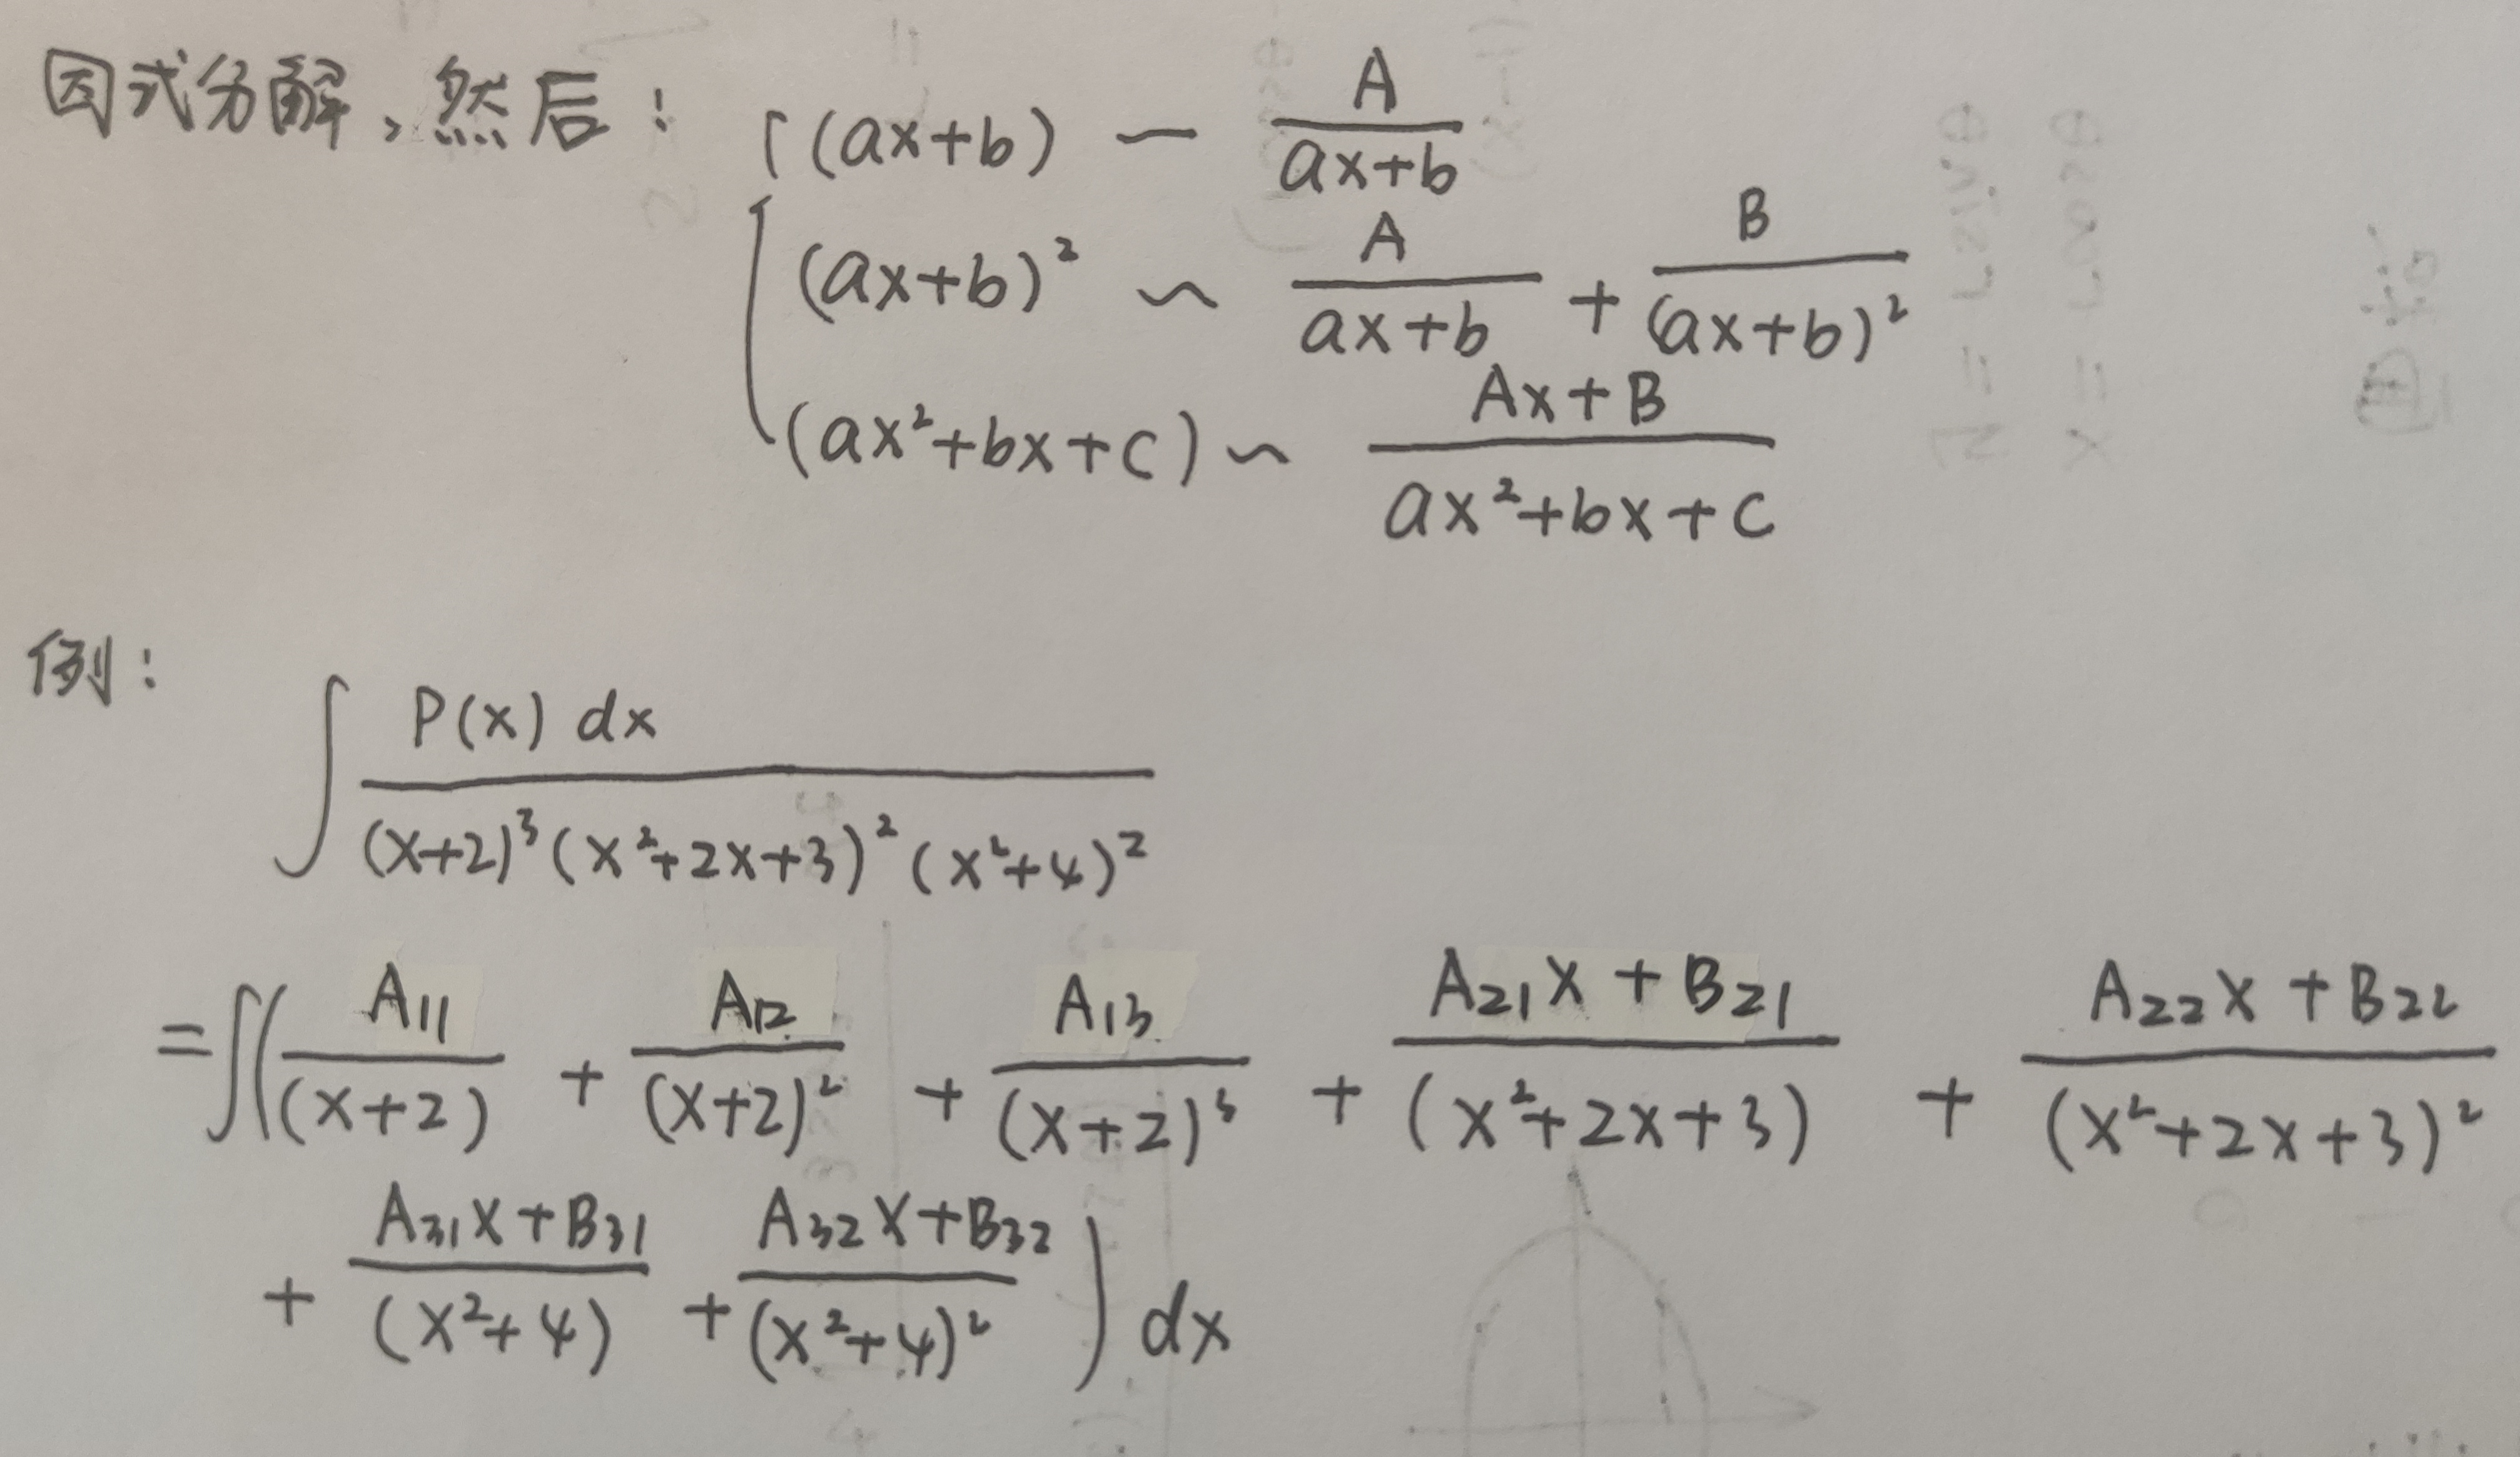 因式分解,然后:
(ax+b) — A/(ax+b)
(ax+b)² ~ A/(ax+b) + B/(ax+b)²
(ax²+bx+c) ~ (Ax+B)/(ax²+bx+c)
例:
∫ P(x) dx / ((x+2)³(x²+2x+3)²(x²+4)²)
=∫( A₁₁/(x+2) + A₁₂/(x+2)² + A₁₃/(x+2)³ + (A₂₁x + B₂₁)/(x²+2x+3) + (A₂₂x + B₂₂)/(x²+2x+3)²
+ (A₃₁x+B₃₁)/(x²+4) + (A₃₂x+B₃₂)/(x²+4)² ) dx